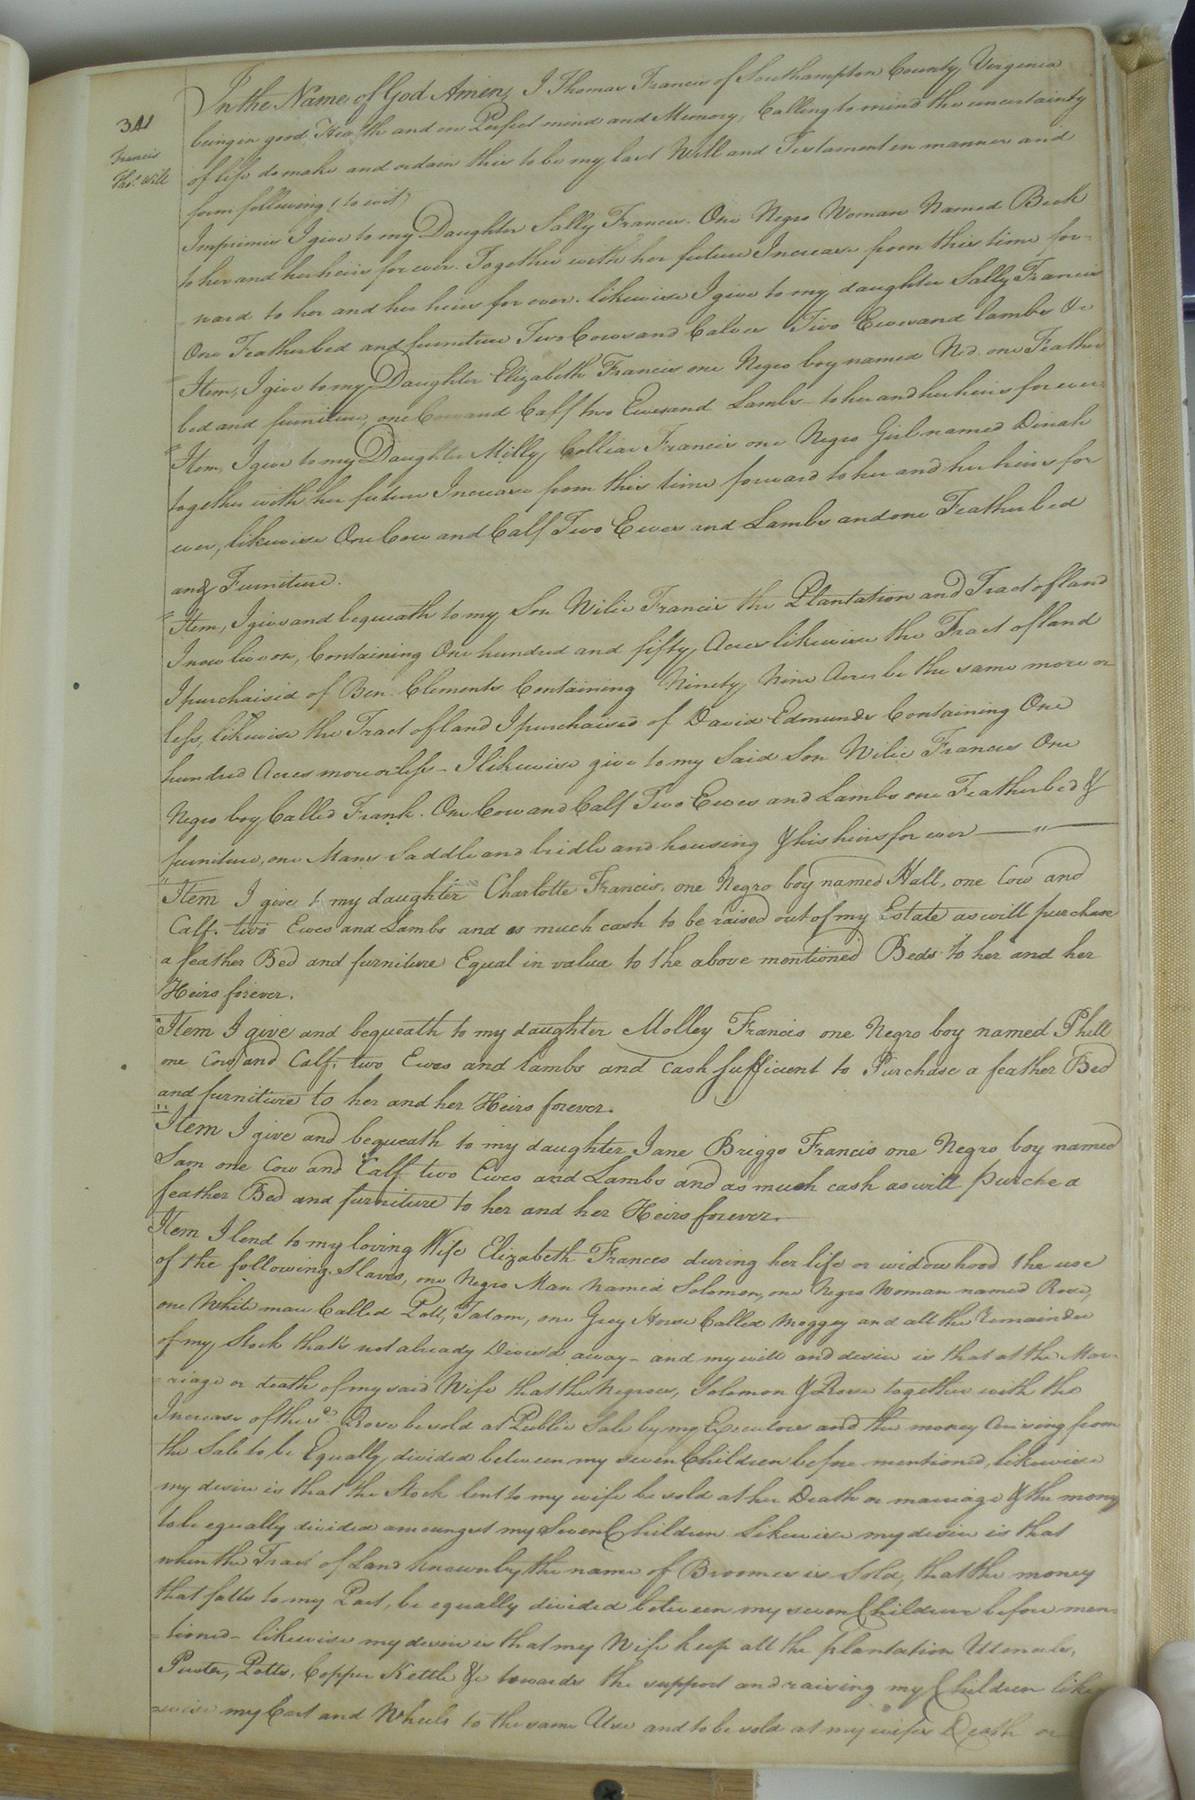 341
Francis
Thos. Will
In the Name of God Amen, I Thomas Francis of Southampton County, Virginia
being in good Health and in Perfect mind and Memory, Calling to mind the uncertainty
of life do make and ordain this to be my last Will and Testament in manner and
form following (to wit)
Imprimis I give to my Daughter Sally Francis. One Negro Woman Named Beck
to her and her heirs for ever. Together with her future Increase from this time for-
ward to her and her heirs for ever. likewise I give to my daughter Sally Francis
One Featherbed and furniture Two Cows and Calves Two Ewes and lambs &c
Item, I give to my Daughter Elizabeth Francis one Negro boy named Ned. one Feather
bed and furniture, one Cow and Calf two Ewes and Lambs to her and her heirs for ever
Item, I give to my Daughter Milly Colliar Francis one Negro Girl named Dinah
together with her future Increase from this time forward to her and her heirs for
ever, likewise One Cow and Calf Two Ewes and Lambs and one Feather bed
and Furniture.
Item, I give and bequeath to my Son Wilie Francis the Plantation and Tract of land
I now live on, Containing One hundred and fifty Acres likewise the Tract of land
I purchaisid of Ben. Clements Containing Ninety Nine Acres be the same more or
less, likewise the Tract of land I purchaised of David Edmunds Containing One
hundred Acres more or less - I likewise give to my Said Son Wilie Francis One
Negro boy Called Frank. One Cow and Calf Two Ewes and Lambs one Featherbed &
furniture, one Mans Saddle and bridle and housing & his heirs for ever
Item I give to my daughter Charlotte Francis, one Negro boy named Hall, one Cow and
Calf. two Ewes and Lambs and as much cash to be raised out of my Estate as will purchase
a feather Bed and furniture Equal in value to the above mentioned Beds to her and her
Heirs forever.
Item I give and bequeath to my daughter Molley Francis one Negro boy named Phill
one Cow and Calf. two Ewes and lambs and cash sufficient to Purchase a feather Bed
and furniture to her and her Heirs forever.
Item I give and bequeath to my daughter Jane Briggs Francis one Negro boy named
Sam one Cow and Calf two Ewes and Lambs and as much cash as will purche a
feather Bed and furniture to her and her Heirs forever.
Item I lend to my loving Wife Elizabeth Frances during her life or widowhood the use
of the following Slaves, one Negro Man named Solomon, one Negro Woman named Rose,
one White mare Called Poll, Tatom, one Grey Horse Called Moggey and all the remainder
of my Stock thats not already Devised away - and my will and desire is that at the Mar-
-riage or death of my said Wife that the Negroes, Solomon & Rose together with the
Increase of the sd. Rose be sold at Public Sale by my Executors and the money Arising from
the Sale to be Equally divided between my seven Children before mentioned, likewise
my desire is that the Stock lent to my wife be sold at her Death or marriage & the money
to be equally divided amoungst my Seven Children Likewise my desire is that
when the Tract of Land known by the name of Broomes is Sold, that the money
that falls to my Part, be equally divided between my seven Children before men-
-tioned - likewise my desire is that my Wife keep all the plantation Utensels,
Puter, Potts, Copper Kettle &c towards the support and raising my Children like
-wise my Cart and Wheels to the same Use and to be sold at my wifes Death or